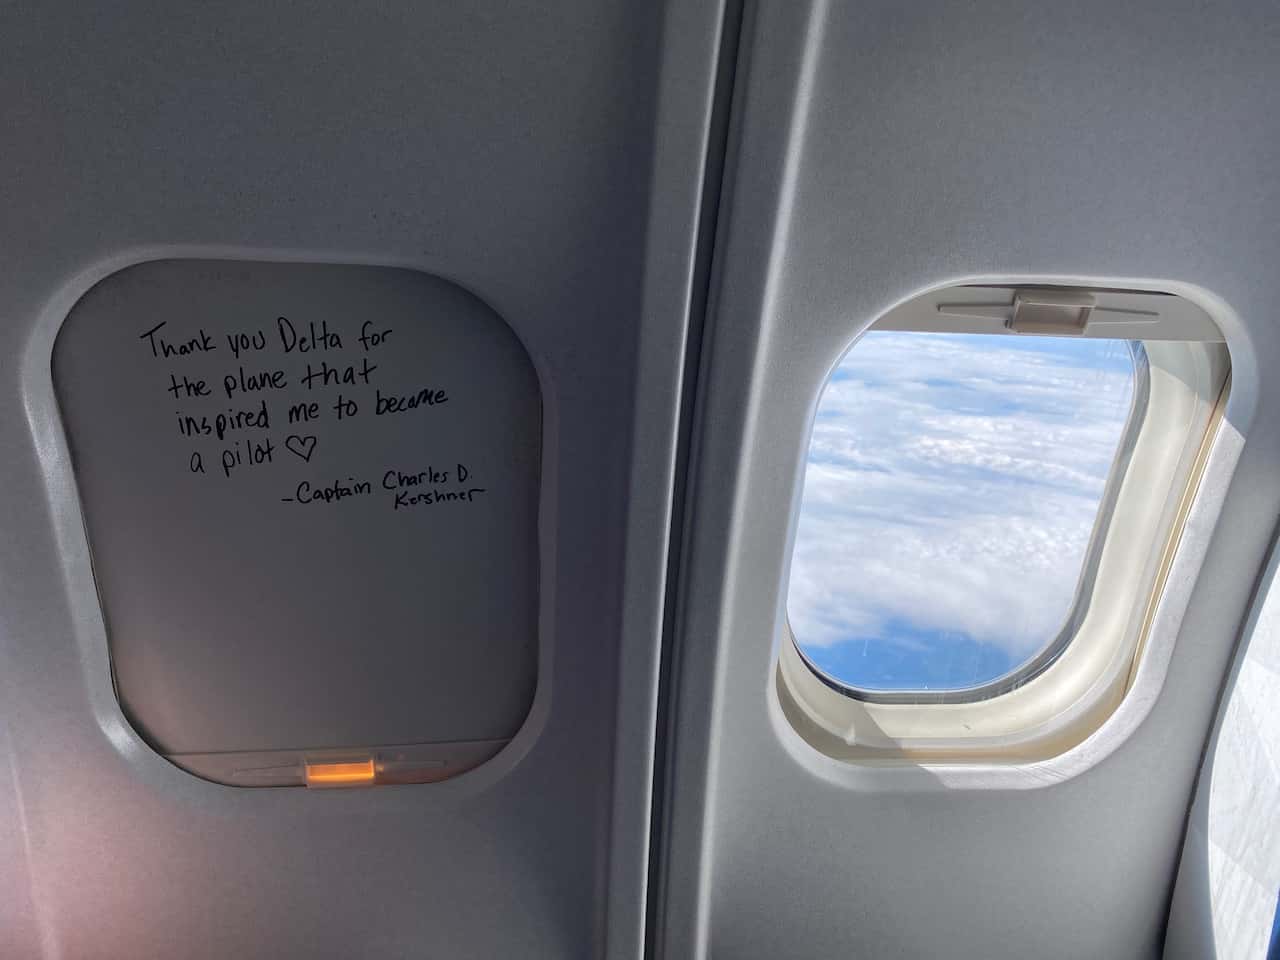 Thank you Delta for
the plane that
inspired me to become
a pilot ♡
-Captain Charles D.
Kershner